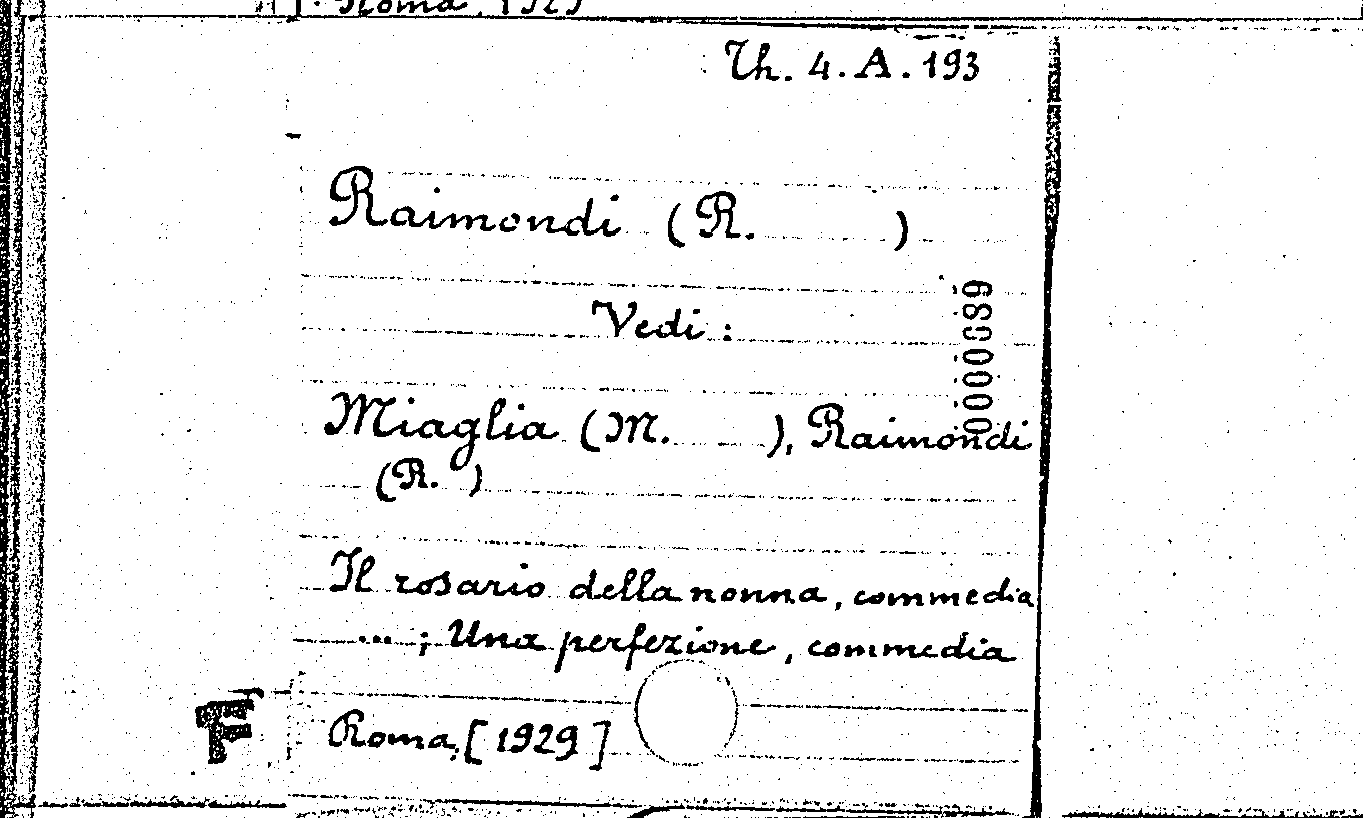 . Roma, 1929
Th. 4. A. 193
Raimondi (R. )
Vedi :
0000689
Miaglia (M. ), Raimondi
(R. )
Il rosario della nonna, commedia
... ; Una perfezione, commedia
F
Roma, [1929]